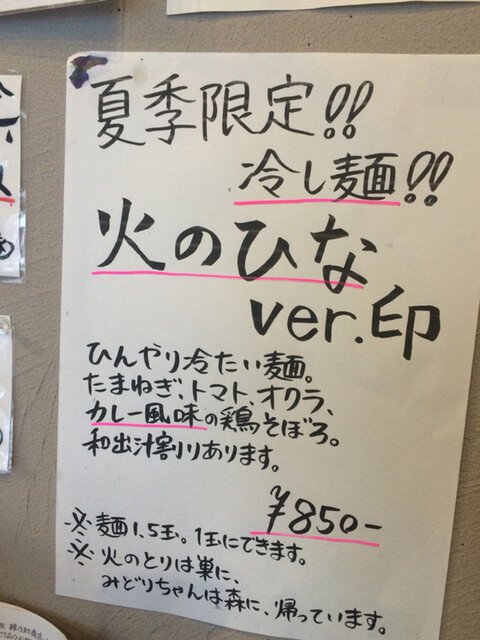 夏季限定!!
冷し麺!!
火のひな
ver.印
ひんやり冷たい麺。
たまねぎ、トマト、オクラ、
カレー風味の鶏そぼろ。
和出汁割りあります。
¥850-
※麺1.5玉。1玉にできます。
※火のとりは巣に、
みどりちゃんは森に、帰っています。